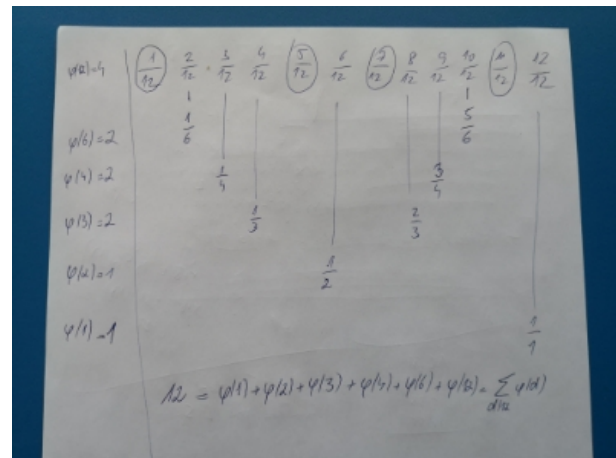 φ(12)=4 1/12 2/12 3/12 4/12 5/12 6/12 7/12 8/12 9/12 10/12 11/12 12/12
φ(6)=2 1/6 5/6
φ(4)=2 1/4 3/4
φ(3)=2 1/3 2/3
φ(2)=1 1/2
φ(1)=1 1/1
12 = φ(1)+φ(2)+φ(3)+φ(4)+φ(6)+φ(12)= ∑ φ(d)
d|12